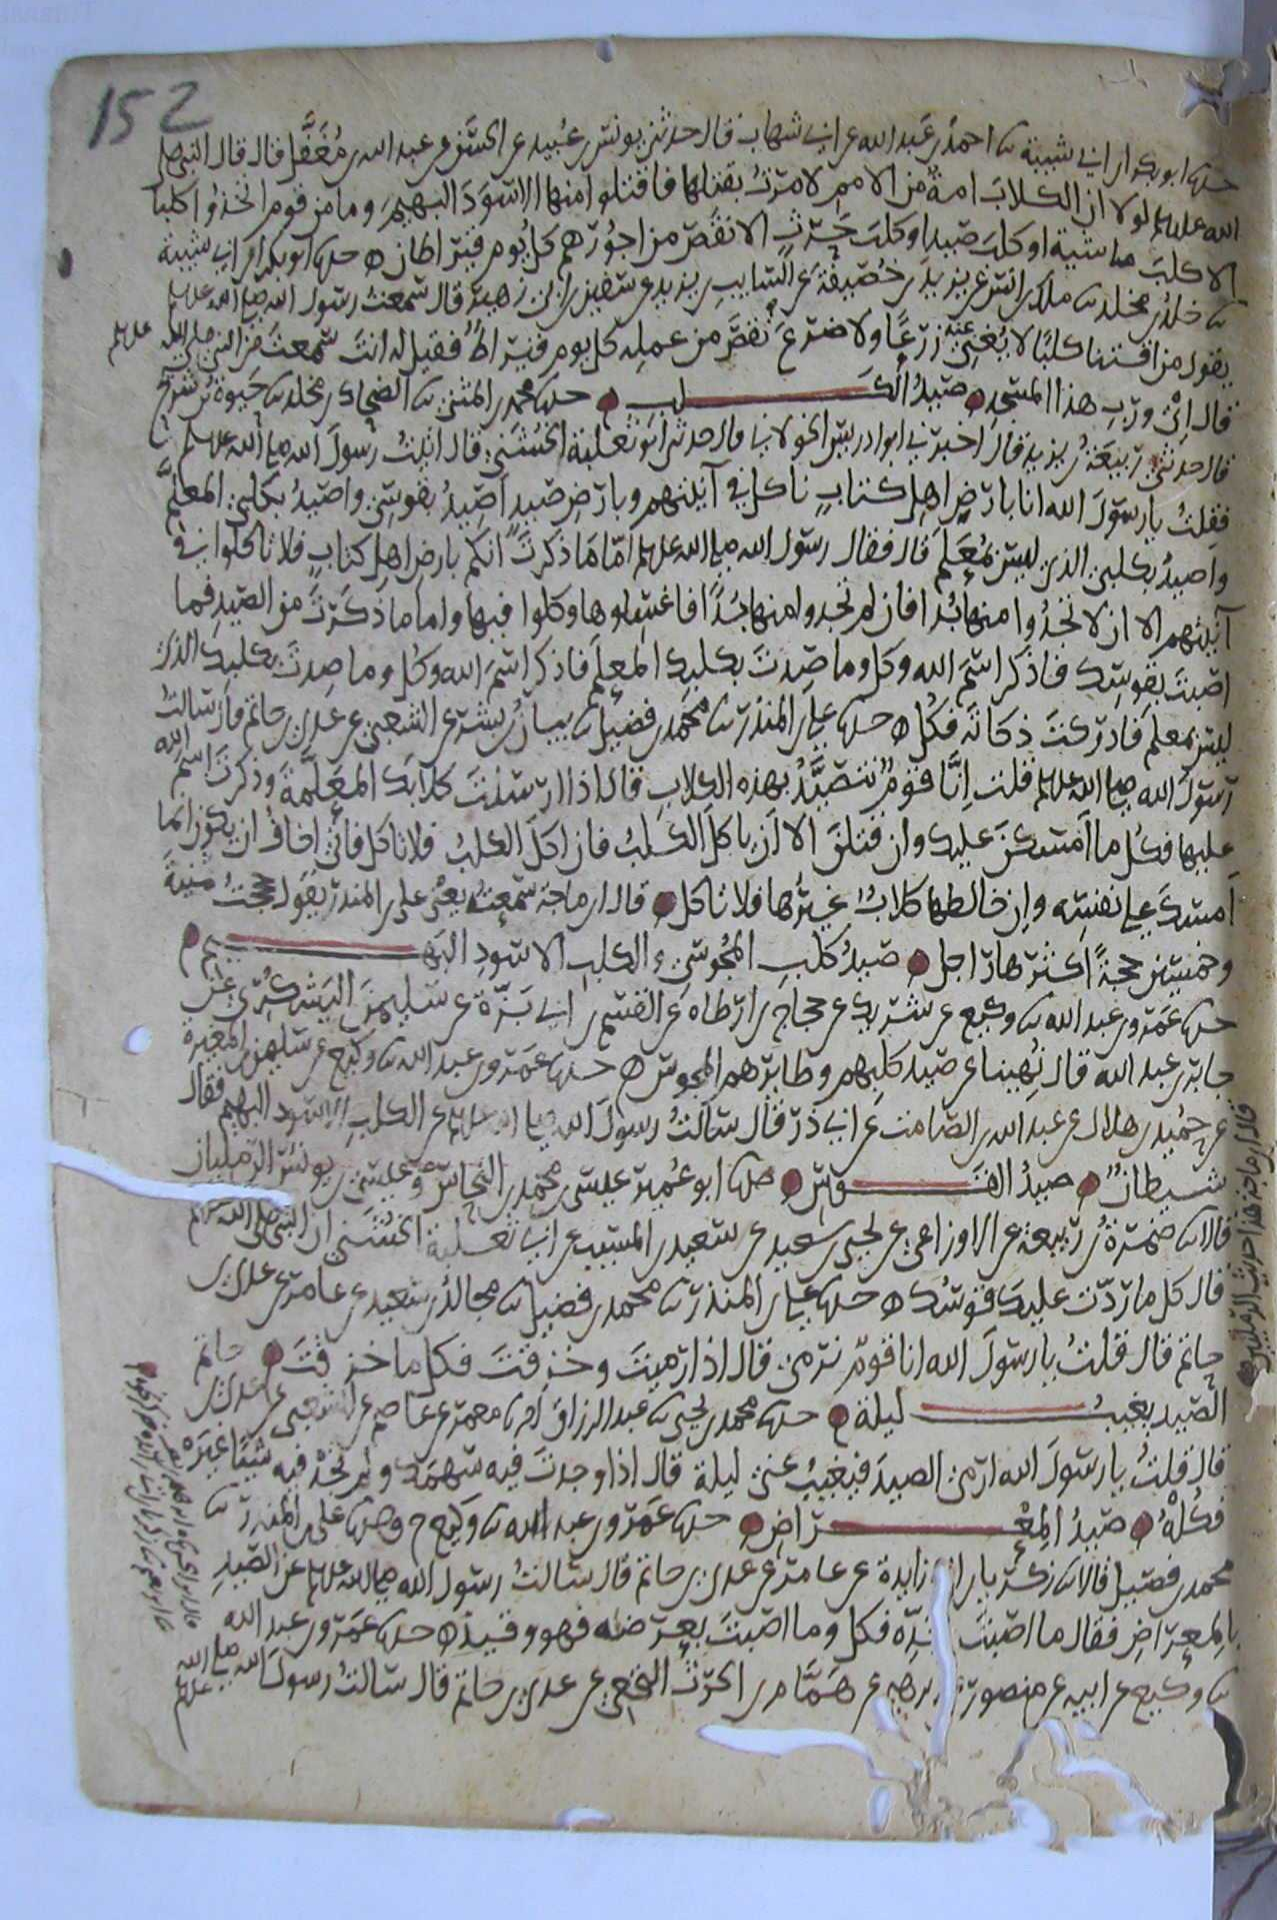 152
حدثنا ابو بكر ابن ابي شيبة ثنا احمد بن عبد الله عن ابي شهاب قال حدثني يونس بن عبيد عن الحسن عن عبد الله بن مغفل قال قال النبي صلى
الله عليه وسلم لولا ان الكلاب امة من الامم لامرت بقتلها فاقتلوا منها الاسود البهيم وما من قوم اتخذوا كلبا
الا كلب ماشية او كلب صيد او كلب حرث الا نقص من اجورهم كل يوم قيراطان حدثنا ابو بكر ابن ابي شيبة
ثنا خالد بن مخلد ثنا ملك بن انس عن يزيد بن خصيفة عن السايب بن يزيد عن سفين بن ابي زهير قال سمعت رسول الله صلى الله عليه وسلم
يقول من اقتنا كلبا لا يغني عنه زرعا ولا ضرع نقص من عمله كل يوم قيراط فقيل له انت سمعت من النبي صلى الله عليه وسلم
قال اي ورب هذا المسجد صيد الكلب حدثنا محمد بن المثنى ثنا الضحاك بن مخلد ثنا حيوة بن شريح
قال حدثني ربيعة بن يزيد قال اخبرني ابو ادريس الخولاني قال حدثني ابو ثعلبة الخشني قال اتيت رسول الله صلى الله عليه وسلم
فقلت يا رسول الله انا بارض اهل كتاب ناكل في آنيتهم وبارض صيد اصيد بقوسي واصيد بكلبي المعلم
واصيد بكلبي الذي ليس بمعلم قال فقال رسول الله صلى الله عليه وسلم اما ما ذكرت انكم بارض اهل كتاب فلا تاكلوا في
آنيتهم الا ان لا تجدوا منها بدا فان لم تجدوا منها بدا فاغسلوها وكلوا فيها واما ما ذكرت من الصيد فما
اصبت بقوسك فاذكر اسم الله وكل وما صدت بكلبك المعلم فاذكر اسم الله وكل وما صدت بكلبك الذي
ليس بمعلم فادركت ذكاته فكل حدثنا علي بن المنذر ثنا محمد بن فضيل ثنا بيان بن بشر عن الشعبي عن عدي بن حاتم قال سالت
رسول الله صلى الله عليه وسلم قلت انا قوم نتصيد بهذه الكلاب قال اذا ارسلت كلابك المعلمة وذكرت اسم الله
عليها فكل ما امسكن عليك وان قتلن الا ان ياكل الكلب فان اكل الكلب فلا تاكل فاني اخاف ان يكون انما
امسك على نفسه وان خالطها كلاب غيرها فلا تاكل قال ابن ماجة سمعته يعني علي بن المنذر يقول حججت ثمنية
وخمسين حجة اكثرها راجل صيد كلب المجوسي والكلب الاسود البهيم
حدثنا عمرو بن عبد الله ثنا وكيع عن شريك عن حجاج بن ارطاه عن القسم بن ابي بزة عن سليمن اليشكري عن
جابر بن عبد الله قال نهينا عن صيد كلبهم وطايرهم المجوس حدثنا عمرو بن عبد الله ثنا وكيع عن سليمن بن المغيرة
عن حميد بن هلال عن عبد الله بن الصامت عن ابي ذر قال سالت رسول الله صلى الله عليه وسلم عن الكلب الاسود البهيم فقال
شيطان صيد القوس حدثنا ابو عمير عيسى بن محمد بن النحاس وعيسى بن يونس الرمليان
قالا ثنا ضمرة بن ربيعة عن الاوزاعي عن يحيى بن سعيد عن سعيد بن المسيب عن ابي ثعلبة الخشني ان النبي صلى الله عليه وسلم
قال كل ما ردت عليك قوسك حدثنا علي بن المنذر ثنا محمد بن فضيل ثنا مجالد بن سعيد عن عامر عن عدي بن
حاتم قال قلت يا رسول الله انا قوم نرمي قال اذا رميت وخزقت فكل ما خزقت
الصيد يغيب ليلة حدثنا محمد بن يحيى ثنا عبد الرزاق انا معمر عن عاصم عن الشعبي عن عدي بن حاتم
قال قلت يا رسول الله ارمي الصيد فيغيب عني ليلة قال اذا وجدت فيه سهمك ولم تجد فيه شيئا غيره
فكله صيد المعراض حدثنا عمرو بن عبد الله ثنا وكيع ح وحدثنا علي بن المنذر ثنا
محمد بن فضيل قالا ثنا زكريا بن ابي زايدة عن عامر عن عدي بن حاتم قال سالت رسول الله صلى الله عليه وسلم عن الصيد
بالمعراض فقال ما اصبت بحده فكل وما اصبت بعرضه فهو وقيذ حدثنا عمرو بن عبد الله
ثنا وكيع عن ابيه عن منصور عن ابرهيم عن همام بن الحرث النخعي عن عدي بن حاتم قال سالت رسول الله صلى الله عليه وسلم
قال ابن ماجة هذا حديث الرمليين